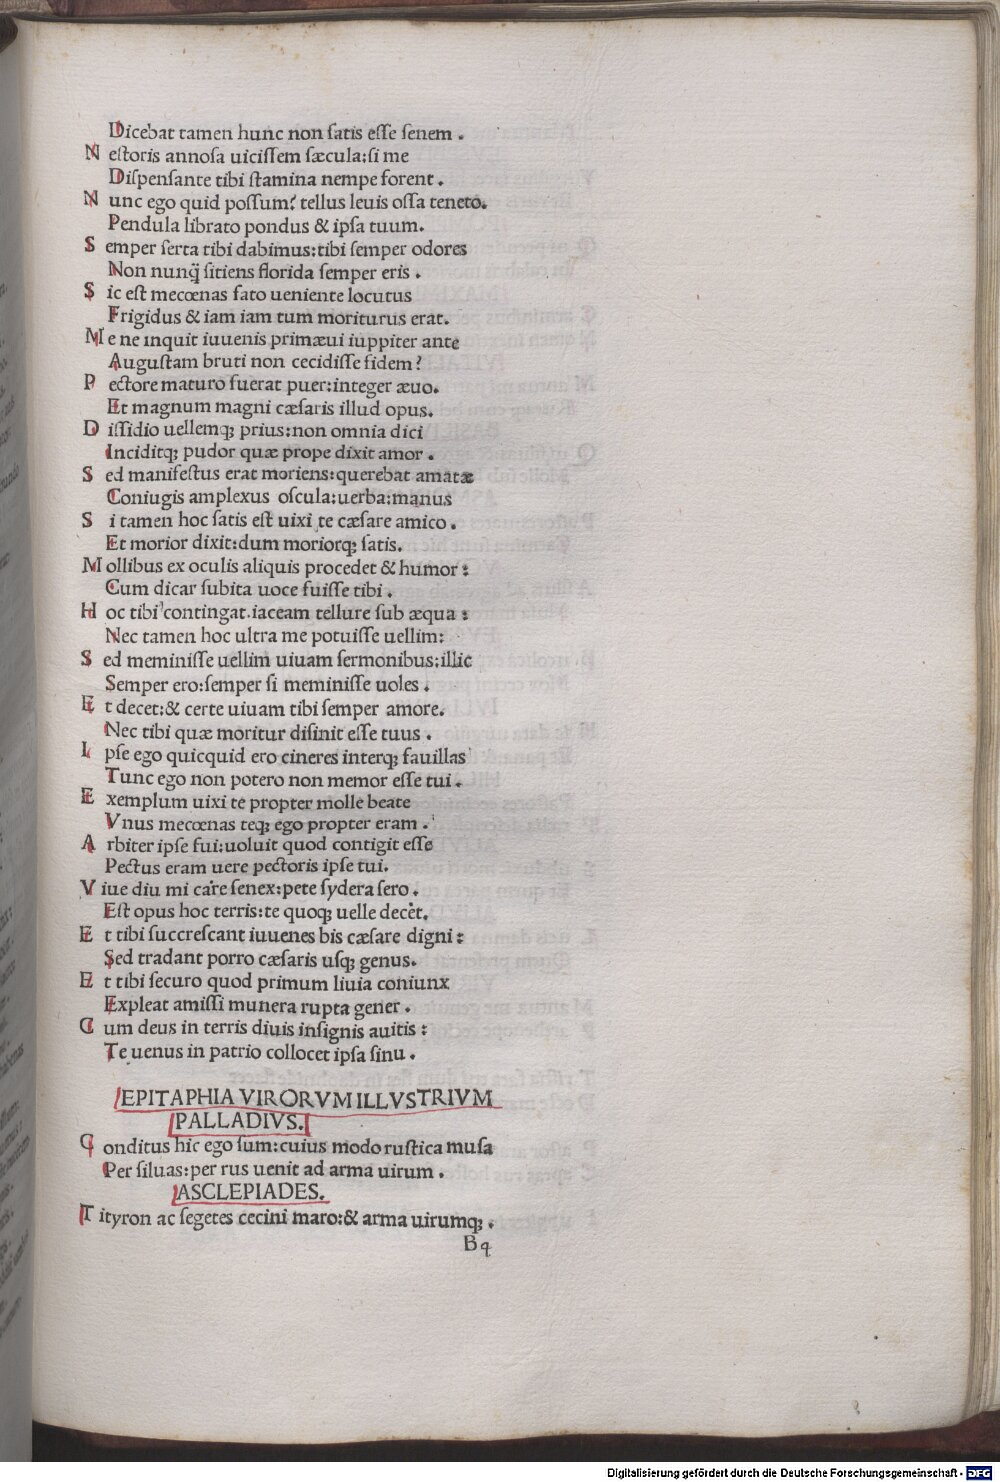 Dicebat tamen hunc non ſatis eſſe ſenem .
N eſtoris annoſa uiciſſem ſæcula:ſi me
Diſpenſante tibi ſtamina nempe forent .
N unc ego quid poſſum? tellus leuis oſſa teneto.
Pendula librato pondus & ipſa tuum.
S emper ſerta tibi dabimus:tibi ſemper odores
Non nunq̃ ſitiens florida ſemper eris .
S ic eſt mecœnas fato ueniente locutus
Frigidus & iam iam tum moriturus erat.
M e ne inquit iuuenis primæui iuppiter ante
Auguſtam bruti non cecidiſſe fidem?
P ectore maturo fuerat puer:integer æuo.
Et magnum magni cæſaris illud opus.
D iſſidio uellemq; prius:non omnia dici
Inciditq; pudor quæ prope dixit amor .
S ed manifeſtus erat moriens:querebat amatæ
Coniugis amplexus oſcula:uerba:manus
S i tamen hoc ſatis eſt uixi te cæſare amico .
Et morior dixit:dum moriorq; ſatis.
M ollibus ex oculis aliquis procedet & humor :
Cum dicar ſubita uoce fuiſſe tibi .
H oc tibi contingat.iaceam tellure ſub æqua :
Nec tamen hoc ultra me potuiſſe uellim:
S ed meminiſſe uellim uiuam ſermonibus:illic
Semper ero:ſemper ſi meminiſſe uoles .
E t decet:& certe uiuam tibi ſemper amore.
Nec tibi quæ moritur diſinit eſſe tuus .
I pſe ego quicquid ero cineres interq; fauillas
Tunc ego non potero non memor eſſe tui .
E xemplum uixi te propter molle beate
Vnus mecœnas teq; ego propter eram .
A rbiter ipſe fui:uoluit quod contigit eſſe
Pectus eram uere pectoris ipſe tui.
V iue diu mi care ſenex:pete ſydera ſero .
Eſt opus hoc terris:te quoq; uelle decet.
E t tibi ſuccreſcant iuuenes bis cæſare digni :
Sed tradant porro cæſaris uſq; genus.
E t tibi ſecuro quod primum liuia coniunx
Expleat amiſſi munera rupta gener .
C um deus in terris diuis inſignis auitis :
Te uenus in patrio collocet ipſa ſinu .
EPITAPHIA VIRORVM ILLVSTRIVM
PALLADIVS.
C onditus hic ego ſum:cuius modo ruſtica muſa
Per ſiluas:per rus uenit ad arma uirum .
ASCLEPIADES.
T ityron ac ſegetes cecini maro:& arma uirumq; .
Digitalisierung gefördert durch die Deutsche Forschungsgemeinschaft - DFG